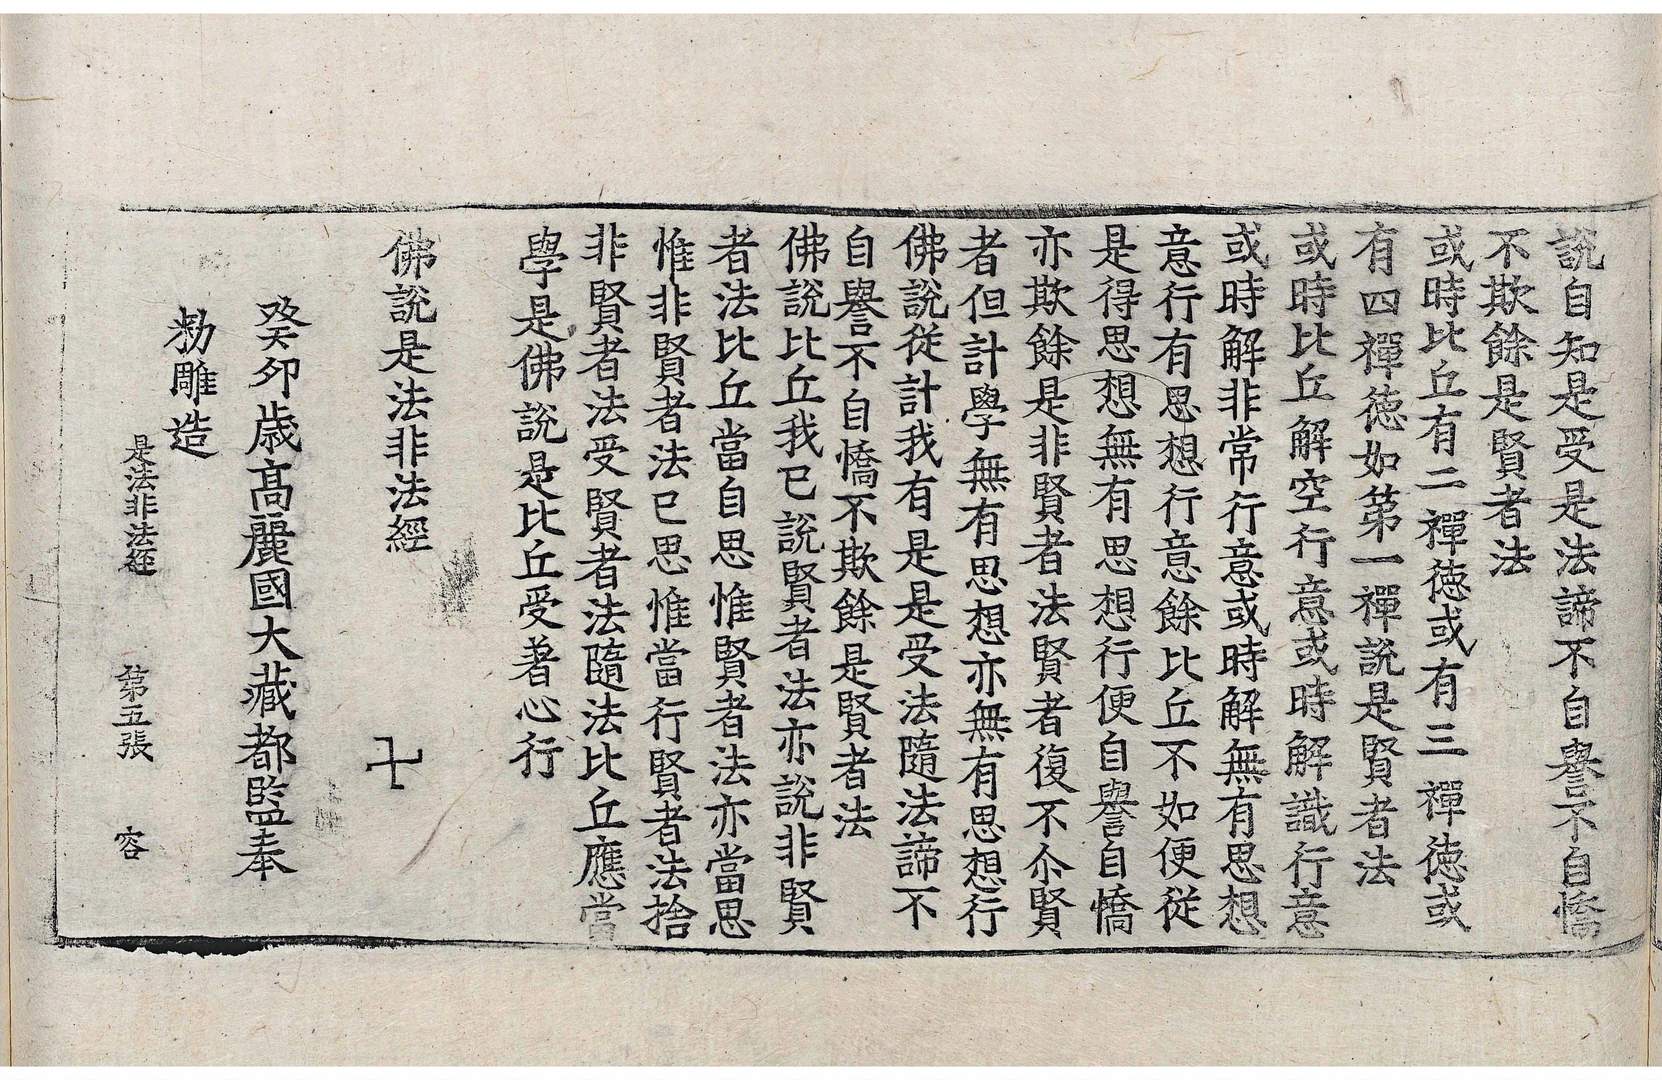 說自知是受是法諦不自譽不自憍
不欺餘是賢者法
或時比丘有二禪德或有三禪德或
有四禪德如第一禪說是賢者法
或時比丘解空行意或時解識行意
或時解非常行意或時解無有思想
意行有思想行意餘比丘不如便從
是得思想無有思想行便自譽自憍
亦欺餘是非賢者法賢者復不尒賢
者但計學無有思想亦無有思想行
佛說從計我有是是受法隨法諦不
自譽不自憍不欺餘是賢者法
佛說比丘我已說賢者法亦說非賢
者法比丘當自思惟賢者法亦當思
惟非賢者法已思惟當行賢者法捨
非賢者法受賢者法隨法比丘應當
學是佛說是比丘受著心行
佛說是法非法經
卍
癸卯歲高麗國大藏都監奉
勑雕造
是法非法經 第五張 容